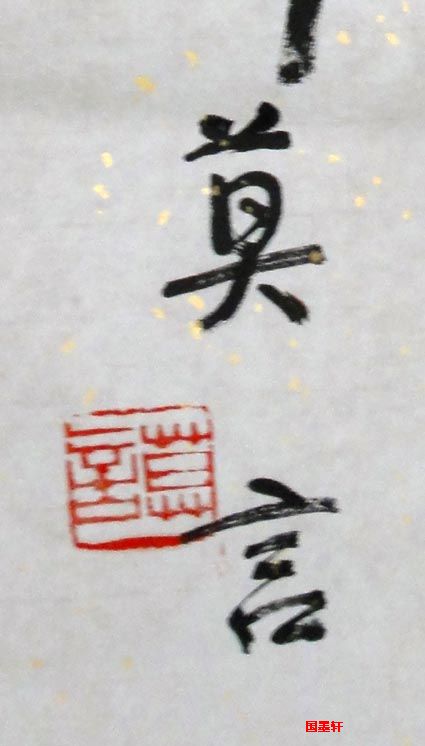 莫言
国墨轩